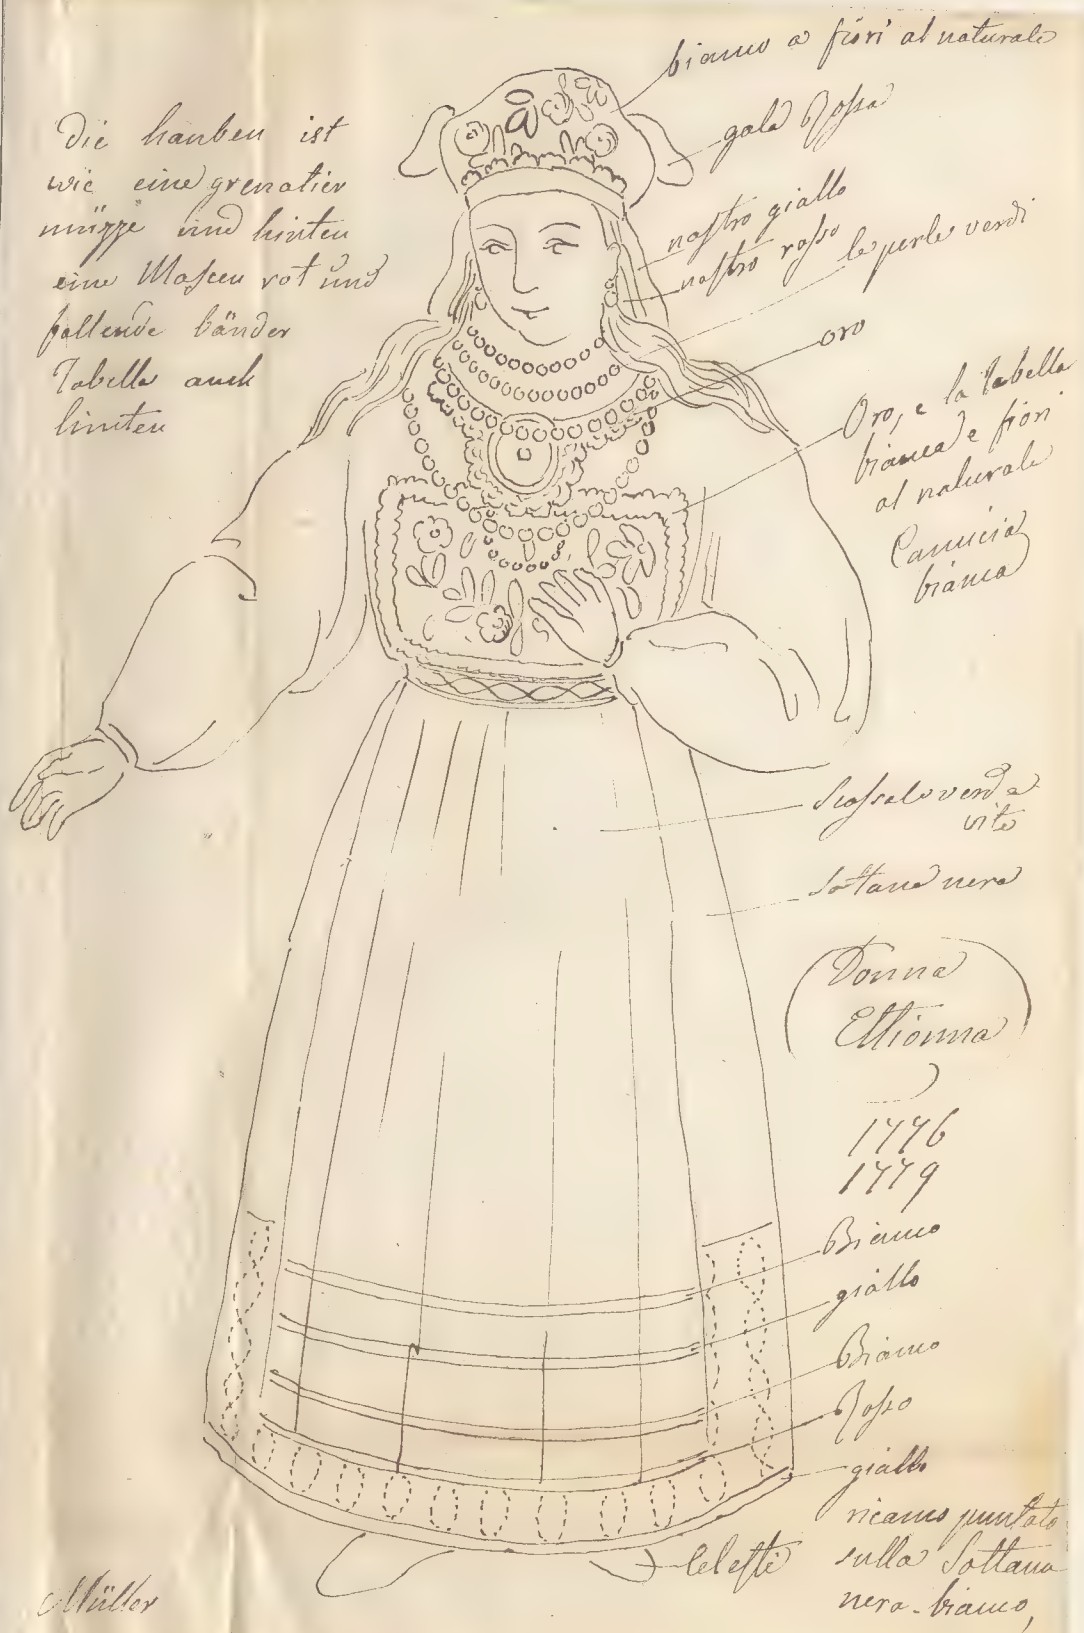 die hauben ist
wie eine grenatier
müzze und hinten
eine Maschen rot und
fallende bänder
Tabella auch
hinten
bianco a fiori al naturale
gala Rossa
nastro giallo
nastro rosso
le perle verdi
oro
Oro, e la tabella
bianca e fiori
al naturale
Camicia
bianca
Scossalo verd a
vite
Sottana nera
(Donna
Estionna)
1776
1779
Bianco
giallo
Bianco
Rosso
giallo
ricamo puntato
sulla Sottana
nera - bianco,
Celeste
Müller